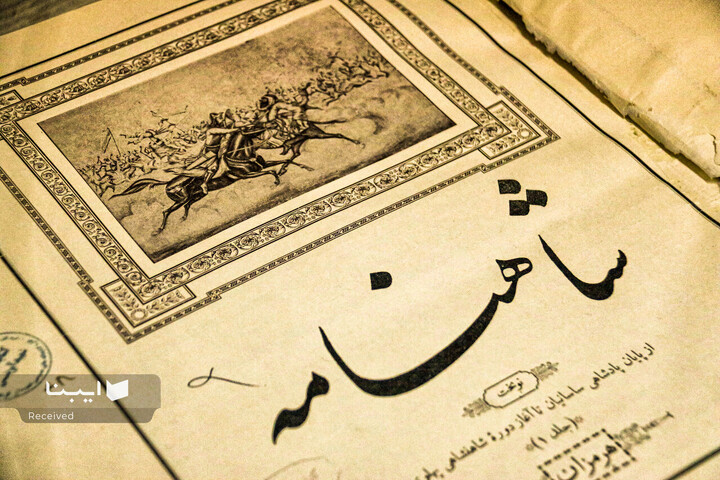 شاهنامه
از پایان پادشاهی ساسانیان تا آغاز دورهٔ شاهنشاهی پهلوی
نوبخت
(جلد ۱)
هرمزان
ایبنا
Received